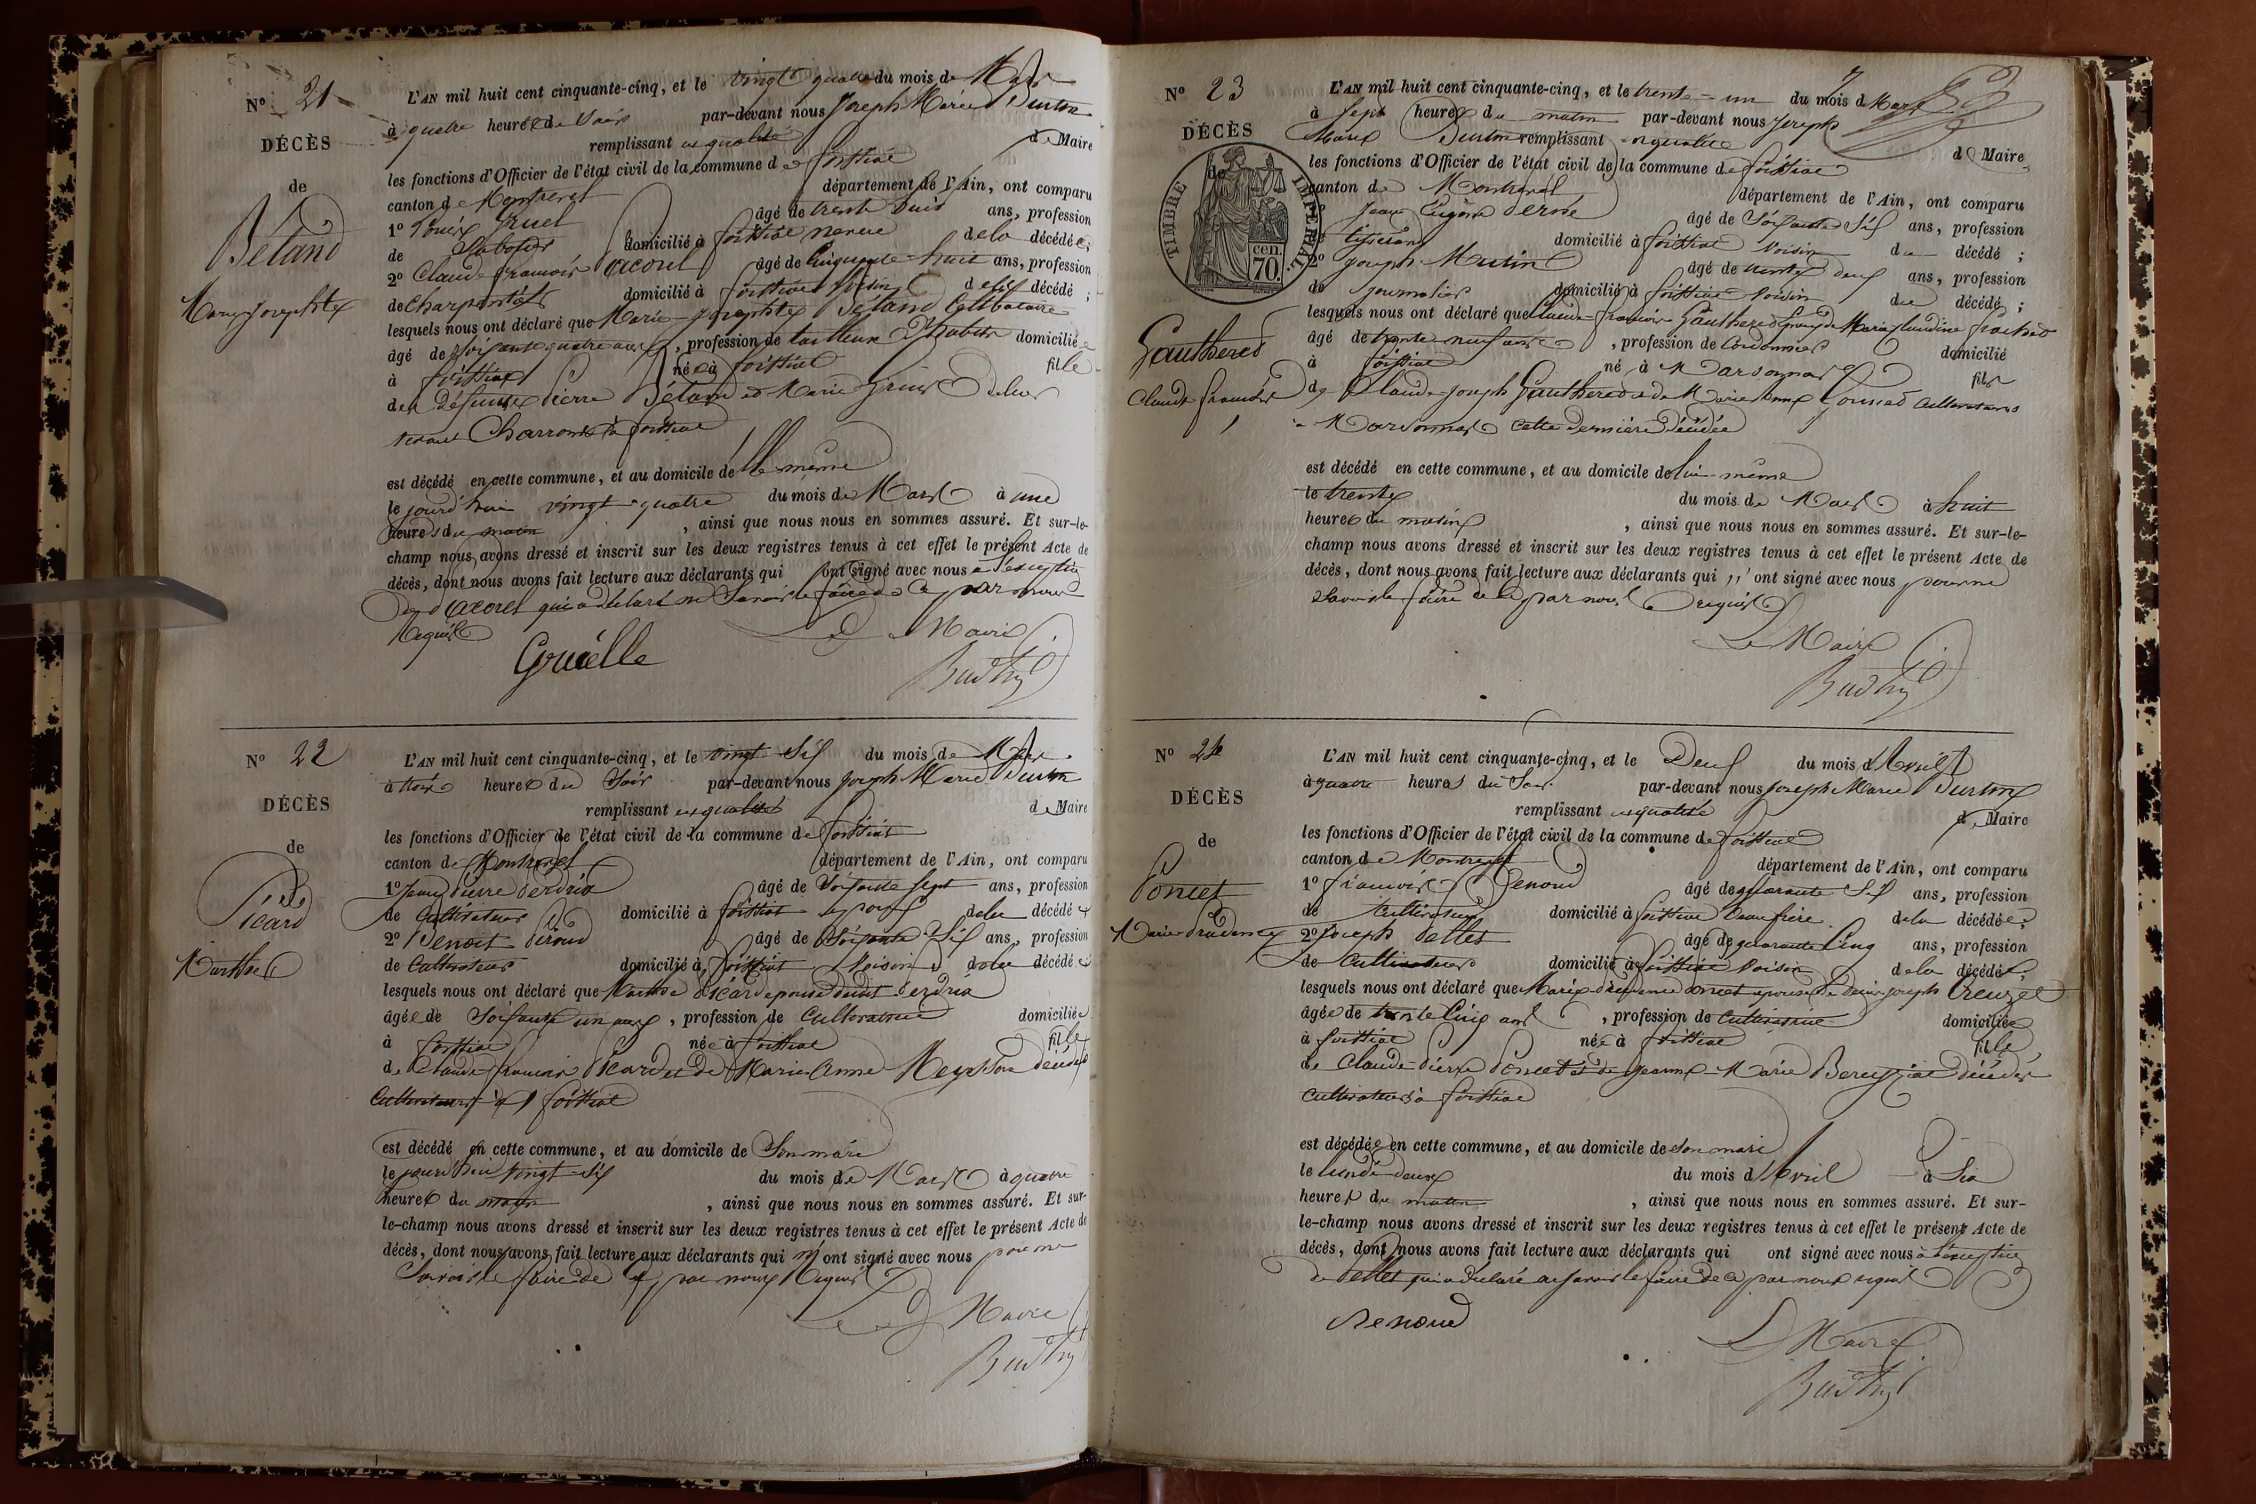 N° 21
DÉCÈS
de
Béland
Marie Josephte
L'AN mil huit cent cinquante-cinq, et le vingt quatre du mois de Mars
à quatre heures du Soir par-devant nous Joseph Marie
remplissant en qualité de Maire
les fonctions d'Officier de l'état civil de la commune de
canton de département de l'Ain, ont comparu
1° Louis Gruel âgé de trente huit ans, profession
de domicilié à neveu de la décédée;
2° Claude François âgé de Cinquante huit ans, profession
de Charpentier domicilié à voisin de la décédé;
lesquels nous ont déclaré que Marie Josephte Béland Célibataire
âgé de Soixante quatre ans, profession de tailleuse d'habits domiciliée
à née à fille
des défunts Pierre Béland et Marie Gruel
Charrons à
est décédé en cette commune, et au domicile de elle même
le jourd'hui vingt-quatre du mois de Mars à une
heures du matin, ainsi que nous nous en sommes assuré. Et sur-le-
champ nous avons dressé et inscrit sur les deux registres tenus à cet effet le présent Acte de
décès, dont nous avons fait lecture aux déclarants qui ont signé avec nous à l'exception
qui a déclaré ne Savoir le faire de ce par nous
Requis
Gruelle Le Maire
N° 22
DÉCÈS
de
Picard
Marthe
L'AN mil huit cent cinquante-cinq, et le vingt Six du mois de Mars
à trois heures du Soir par-devant nous Joseph Marie
remplissant en qualité de Maire
les fonctions d'Officier de l'état civil de la commune de
canton de département de l'Ain, ont comparu
1° Jean Pierre Perdrix âgé de Soixante Sept ans, profession
de Cultivateur domicilié à époux de la décédée
2° Benoit Péroud âgé de Soixante Six ans, profession
de Cultivateur domicilié à Voisin de la décédée
lesquels nous ont déclaré que Marthe Picard épouse dudit Perdrix
âgée de Soixante un ans, profession de Cultivatrice domiciliée
à née à fille
de Claude-François Picard et de Marie Anne décédés
Cultivateurs à
est décédé en cette commune, et au domicile de Son mari
le jourd'hui vingt-Six du mois de Mars à quatre
heures du matin, ainsi que nous nous en sommes assuré. Et sur-
le-champ nous avons dressé et inscrit sur les deux registres tenus à cet effet le présent Acte de
décès, dont nous avons fait lecture aux déclarants qui n'ont signé avec nous pour ne
Savoir le faire de ce par nous Requis
Le Maire
N° 23
DÉCÈS
de
TIMBRE IMPÉRIAL
70 cen
Gauthered
Claude François
L'AN mil huit cent cinquante-cinq, et le trente-un du mois de Mars
à Sept heures du matin par-devant nous Joseph
Marie remplissant en qualité de Maire
les fonctions d'Officier de l'état civil de la commune de
canton de département de l'Ain, ont comparu
Jean Eugène âgé de Soixante Six ans, profession
de tisserand domicilié à Voisin du décédé;
2° Joseph âgé de trente deux ans, profession
de journalier domicilié à voisin du décédé;
lesquels nous ont déclaré que Claude-François Gauthered époux de Marie Claudine
âgé de trente-neuf ans, profession de Cordonnier domicilié
à né à Marsonnas fils
de Claude-Joseph Gauthered et de Marie Anne Cultivateurs
à Marsonnas cette dernière décédée
est décédé en cette commune, et au domicile de lui-même
le trente du mois de Mars à huit
heures du matin, ainsi que nous nous en sommes assuré. Et sur-le-
champ nous avons dressé et inscrit sur les deux registres tenus à cet effet le présent Acte de
décès, dont nous avons fait lecture aux déclarants qui n'ont signé avec nous pour ne
savoir le faire de ce par nous requis
Le Maire
N° 24
DÉCÈS
de
Poncet
Marie Prudence
L'AN mil huit cent cinquante-cinq, et le Deux du mois d'Avril
à quatre heures du Soir par-devant nous Joseph Marie
remplissant en qualité de Maire
les fonctions d'Officier de l'état civil de la commune de
canton de département de l'Ain, ont comparu
1° François Renoud âgé de quarante Six ans, profession
de Cultivateur domicilié à beau frère de la décédée;
2° Joseph Pellet âgé de quarante Cinq ans, profession
de Cultivateur domicilié à Voisin de la décédée;
lesquels nous ont déclaré que Marie-Prudence Poncet épouse de Joseph
âgée de trente Cinq ans, profession de Cultivatrice domiciliée
à née à fille
de Claude-Pierre Poncet et de Jeanne-Marie décédés
Cultivateurs à
est décédée en cette commune, et au domicile de son mari
le lundi deux du mois d'Avril à Six
heures du matin, ainsi que nous nous en sommes assuré. Et sur-
le-champ nous avons dressé et inscrit sur les deux registres tenus à cet effet le présent Acte de
décès, dont nous avons fait lecture aux déclarants qui ont signé avec nous à l'exception
de Pellet qui a déclaré ne savoir le faire de ce par nous requis
Renoud
Le Maire